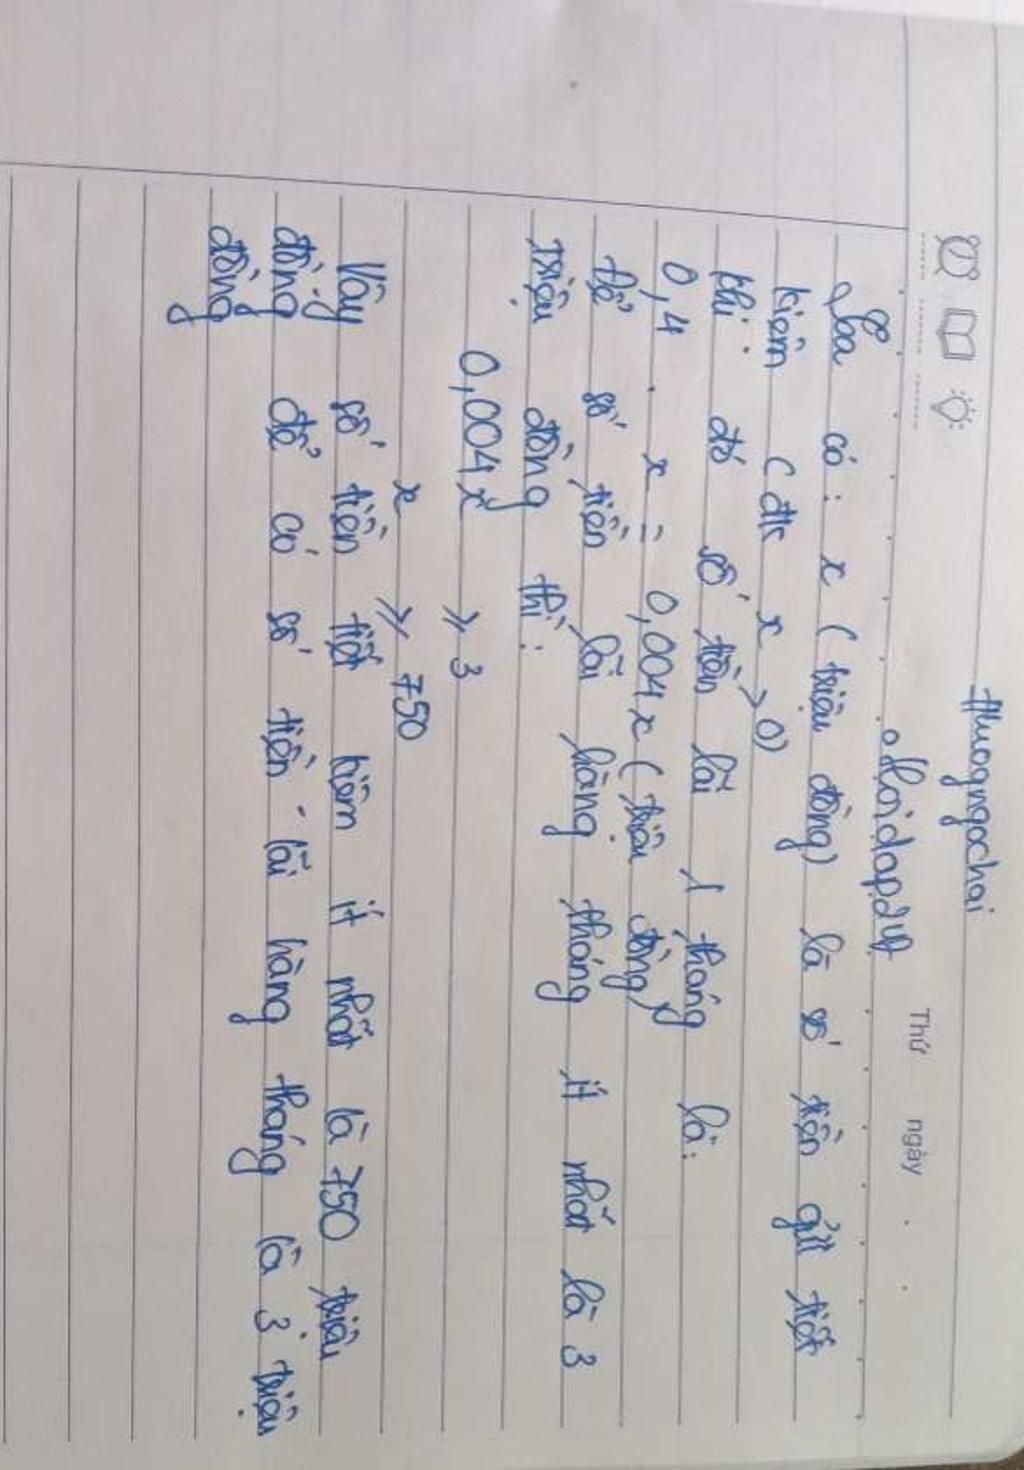 thuongngochai
Hoidap247
Thứ ngày
Ta có: x (triệu đồng) là số tiền gửi tiết
kiệm (đk x > 0)
Khi đó số tiền lãi 1 tháng là:
0,4 . x = 0,004x (triệu đồng)
Để số tiền lãi hàng tháng ít nhất là 3
triệu đồng thì:
0,004x ≥ 3
x ≥ 750
Vậy số tiền tiết kiệm ít nhất là 750 triệu
đồng để có số tiền lãi hàng tháng là 3 triệu
đồng